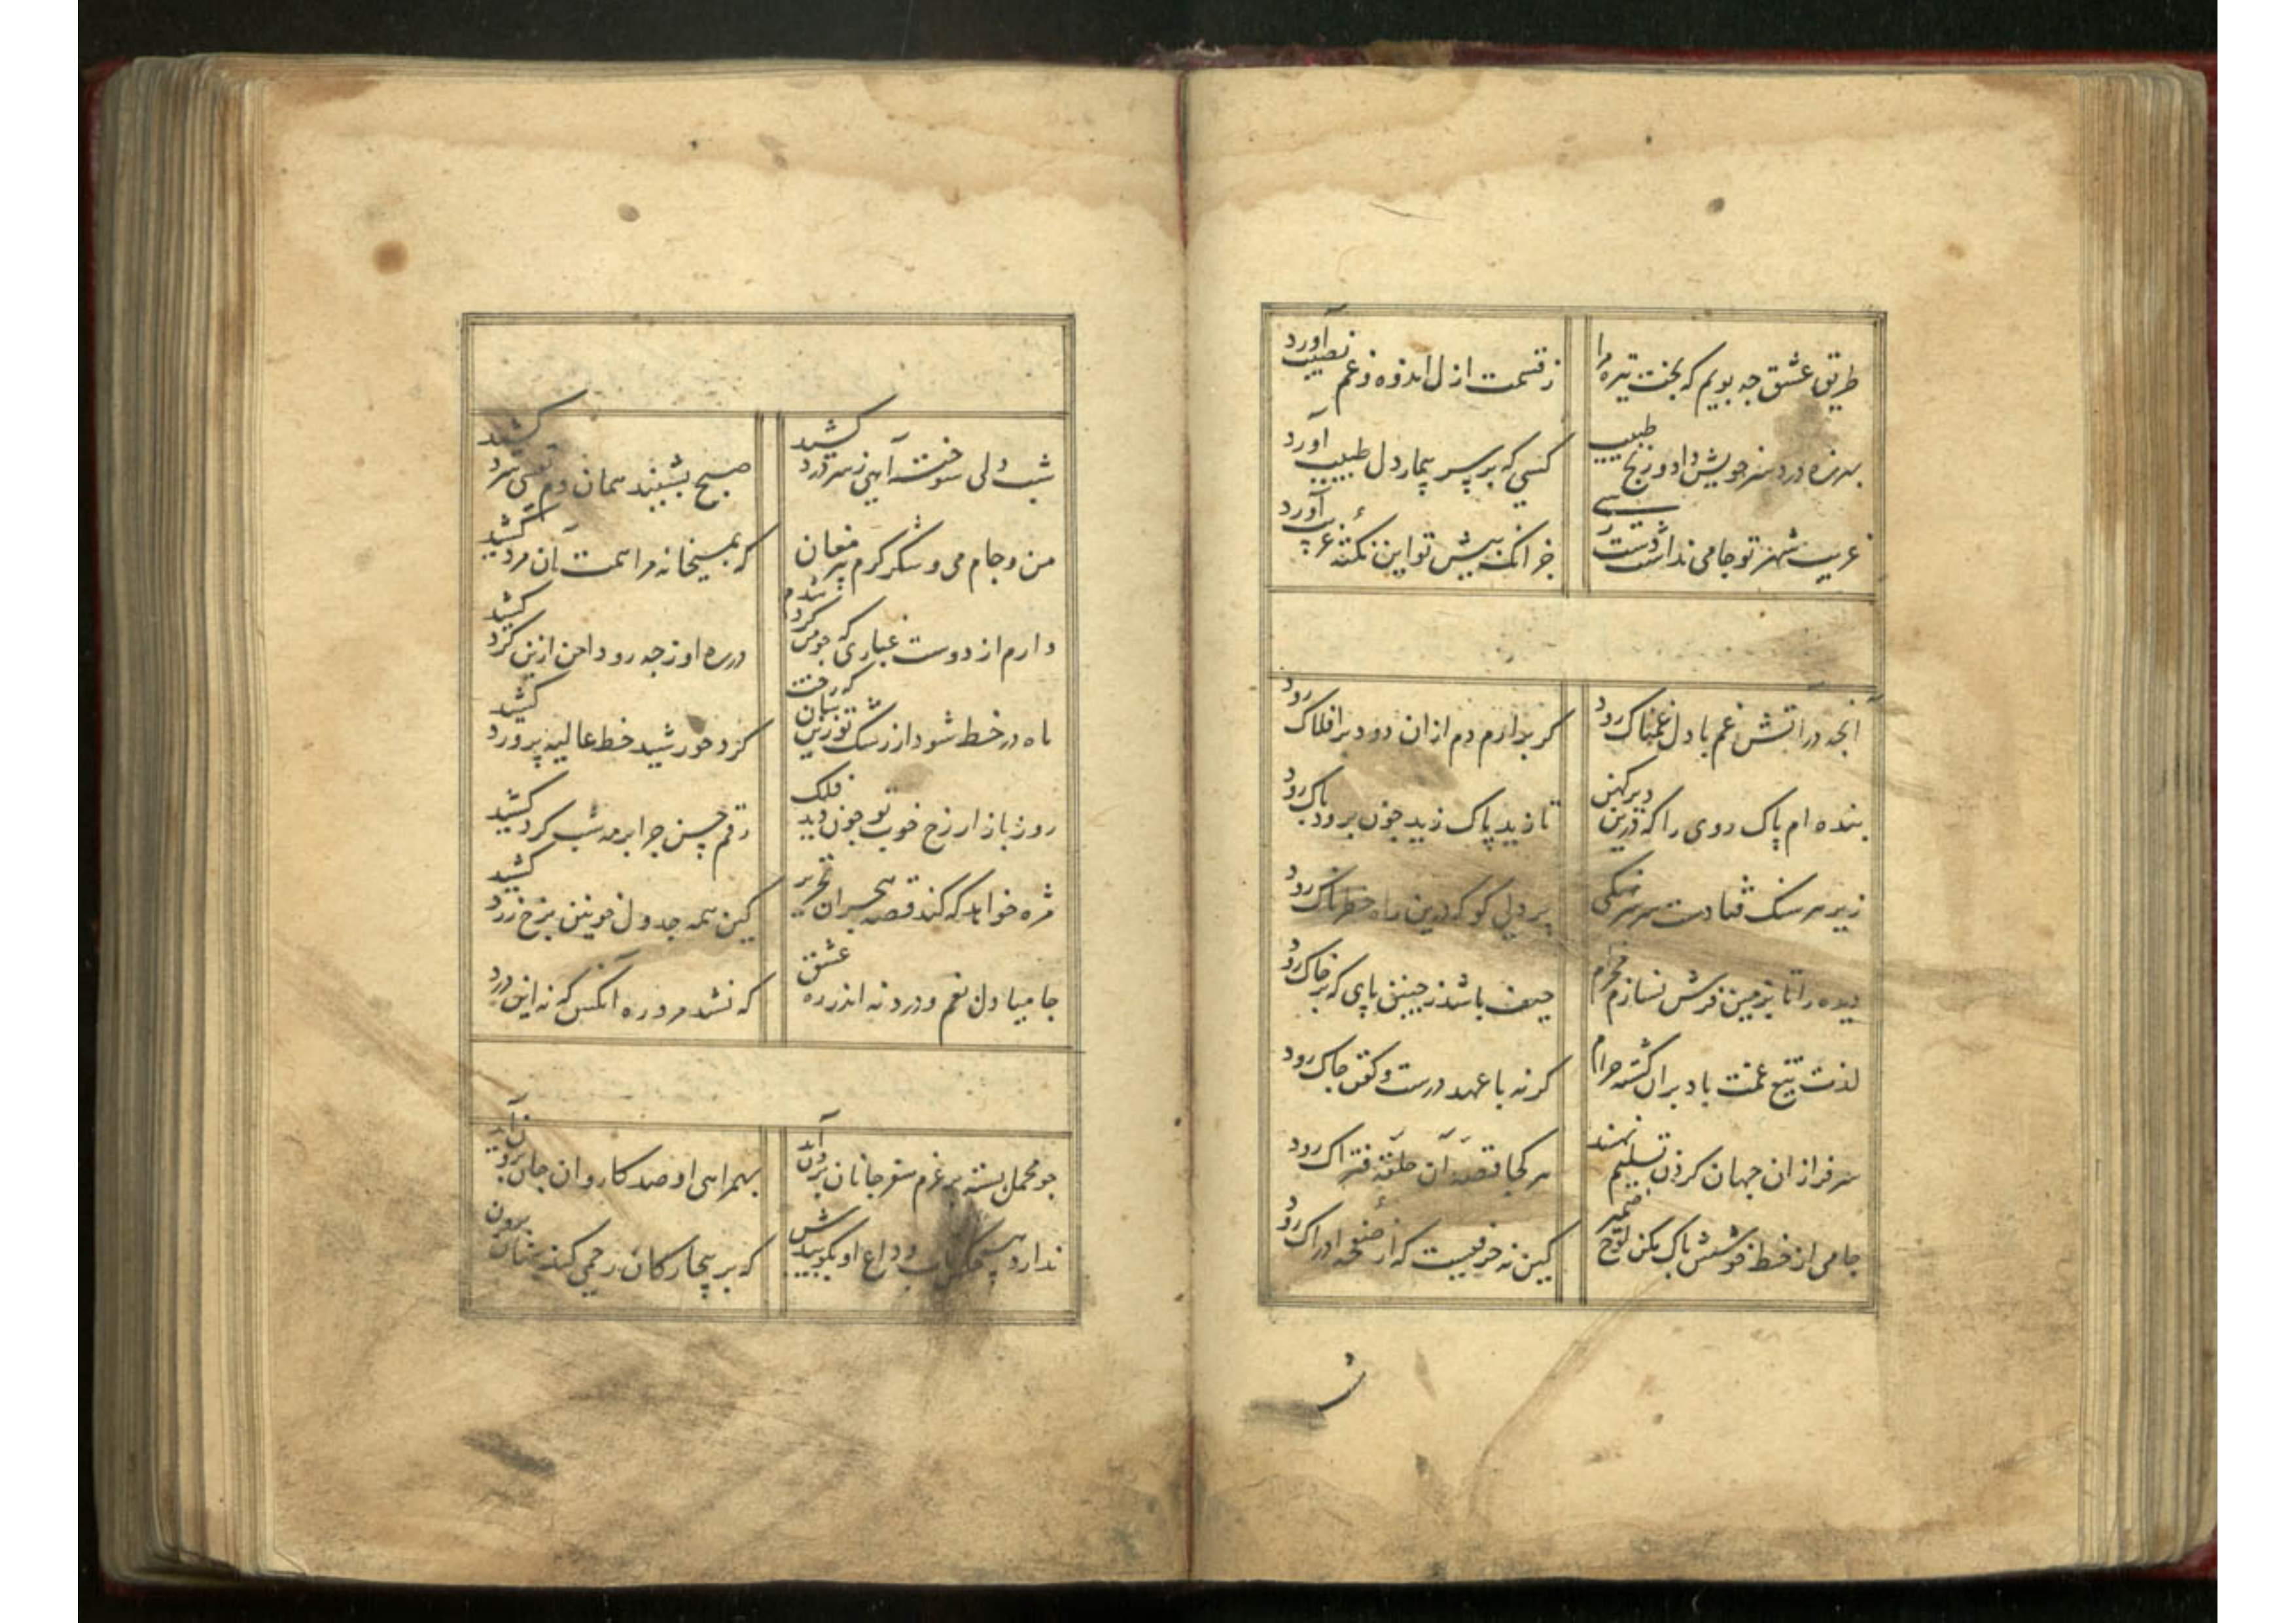 طریق عشق چه پویم که بخت تیره مرا زقسمت ازل اندوه و غم نصیب آورد
بهرزه درد سر خویش داد و رنج طبیب کسی که بر سر بیمار دل طبیب آورد
غریب شهر تو جامی نداشت دست رسی جز آنکه پیش تو این نکتهٔ غریب آورد
آنچه در آتش غم با دل غمناک رود گر برارم دم ازان دود بر افلاک رود
بنده ام پاک روی را که درین دیر کهن تا زید پاک زید چون برود پاک رود
زیر هر سنک فتادست سر سرهنکی پر دلی کو که درین راه خطرناک رود
دیده را تا بزمین فرش نسازم مخرام حیف باشد ز چنین پای که بر خاک رود
لذت تیغ غمت باد بران کشته حرام کر نه با عهد درست و کفن چاک رود
سرفرازان جهان کردن تسلیم نهند هر کجا قصهٔ آن حلقهٔ فتراک رود
جامی از خط خوشش پاک مکن لوح ضمیر کین نه حرفیست که از صفحهٔ ادراک رود
شب دلی سوخته آهی ز سر درد کشید صبح بشنید همان دم نفسی سرد کشید
من و جام می و شکر کرم پیر مغان که بمیخانه مرا همت آن مرد کشید
دارم از دوست غباری که چو من کرد شدم در ره او ز چه رو دامن ازین کرد کشید
ماه در خط شود از رشک تو زین سان که رخت کرد خورشید خط غالیه پرورد کشید
روز بازار رخ خوب تو چون دید فلک رقم حسن چرا بر مه شب کرد کشید
مژه خواهد که کند قصه هجران تحریر کین همه جدول خونین برخ زرد کشید
جامیا دل بغم و درد نه اندر ره عشق که نشد مرد ره آنکس که نه این درد کشید
چو محمل بسته بر عزم سفر جانان برون آید بهمراهی او صد کاروان جان برون آید
ندارد هیچکس تاب وداع او بگوییدش که بر بیچارکان رحمی کند پنهان برون آید